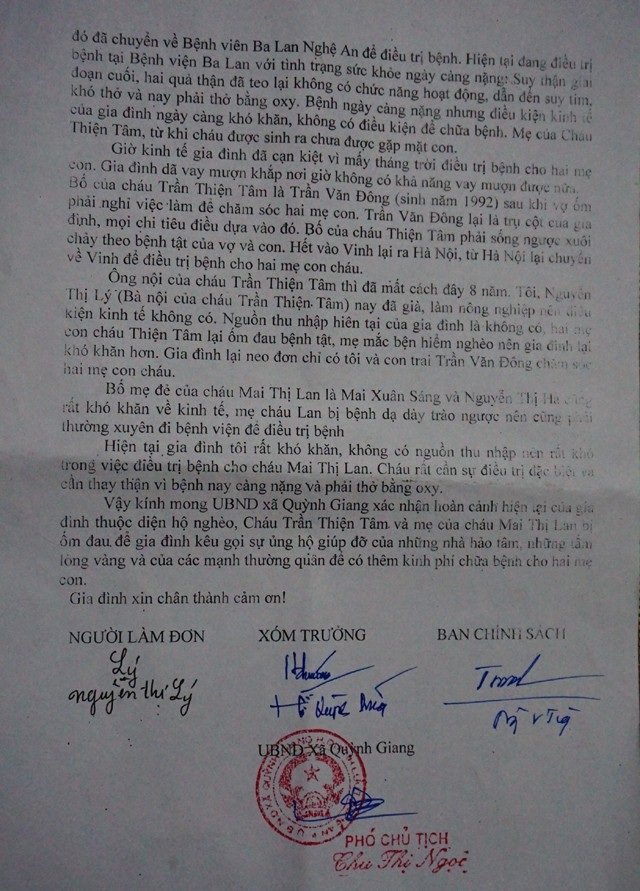 đó đã chuyển về Bệnh viên Ba Lan Nghệ An để điều trị bệnh. Hiện tại đang điều trị
bệnh tại Bệnh viện Ba Lan với tình trạng sức khỏe ngày càng nặng: Suy thận giai
đoạn cuối, hai quả thận đã teo lại không có chức năng hoạt động, dẫn đến suy tim,
khó thở và nay phải thở bằng oxy. Bệnh ngày càng nặng nhưng điều kiện kinh tế
của gia đình ngày càng khó khăn, không có điều kiện để chữa bệnh. Mẹ của Cháu
Thiện Tâm, từ khi cháu được sinh ra chưa được gặp mặt con.
Giờ kinh tế gia đình đã cạn kiệt vì mấy tháng trời điều trị bệnh cho hai mẹ
con. Gia đình đã vay mượn khắp nơi giờ không có khả năng vay mượn được nữa.
Bố của cháu Trần Thiện Tâm là Trần Văn Đông (sinh năm 1992) sau khi vợ ốm
phải nghỉ việc làm để chăm sóc hai mẹ con. Trần Văn Đông lại là trụ cột của gia
định, mọi chi tiêu điều dựa vào đó. Bố của cháu Thiện Tâm phải sống ngược xuôi
chảy theo bệnh tật của vợ và con. Hết vào Vinh lại ra Hà Nội, từ Hà Nội lại chuyển
về Vinh để điều trị bệnh cho hai mẹ con cháu.
Ông nội của cháu Trần Thiện Tâm thì đã mất cách đây 8 năm. Tôi, Nguyễn
Thị Lý (Bà nội của cháu Trần Thiện Tâm) nay đã già, làm nông nghiệp nên điều
kiện kinh tế không có. Nguồn thu nhập hiên tại của gia đình là không có, hai mẹ
con cháu Thiện Tâm lại ốm đau bệnh tật, mẹ mắc bện hiểm nghèo nên gia đình lại
khó khăn hơn. Gia đình lại neo đơn chỉ có tôi và con trai Trần Văn Đông chăm sóc
hai mẹ con cháu.
Bố mẹ đẻ của cháu Mai Thị Lan là Mai Xuân Sáng và Nguyễn Thị Hà cũng
rất khó khăn về kinh tế, mẹ cháu Lan bị bệnh dạ dày trào ngược nên cũng phải
thường xuyên đi bệnh viện để điều trị bệnh
Hiện tại gia đình tôi rất khó khăn, không có nguồn thu nhập nên rất khó
trong việc điều trị bệnh cho cháu Mai Thị Lan. Cháu rất cần sự điều trị đặc biệt và
cần thay thận vì bệnh nay càng nặng và phải thở bằng oxy.
Vậy kính mong UBND xã Quỳnh Giang xác nhận hoàn cảnh hiện tại của gia
đình thuộc diện hộ nghèo, Cháu Trần Thiện Tâm và mẹ của cháu Mai Thị Lan bị
ốm đau, để gia đình kêu gọi sự ủng hộ giúp đỡ của những nhà hảo tâm, những tấm
lòng vàng và của các mạnh thường quân để có thêm kinh phí chữa bệnh cho hai mẹ
con.
Gia đình xin chân thành cảm ơn!
NGƯỜI LÀM ĐƠN XÓM TRƯỞNG BAN CHÍNH SÁCH
Lý
nguyễn thị Lý
UBND Xã Quỳnh Giang
PHÓ CHỦ TỊCH
Chu Thị Ngọc